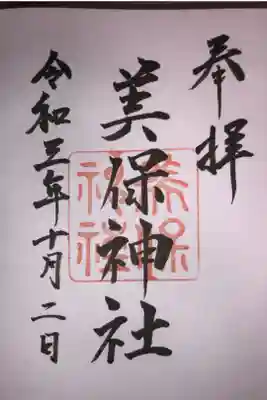 奉拝
美保神社
美保
神社
令和三年十月二日